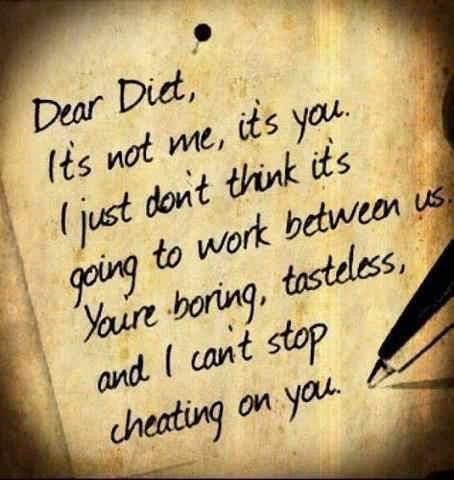 Dear Diet,
It's not me, it's you.
I just don't think it's
going to work between us.
You're boring, tasteless,
and I can't stop
cheating on you.